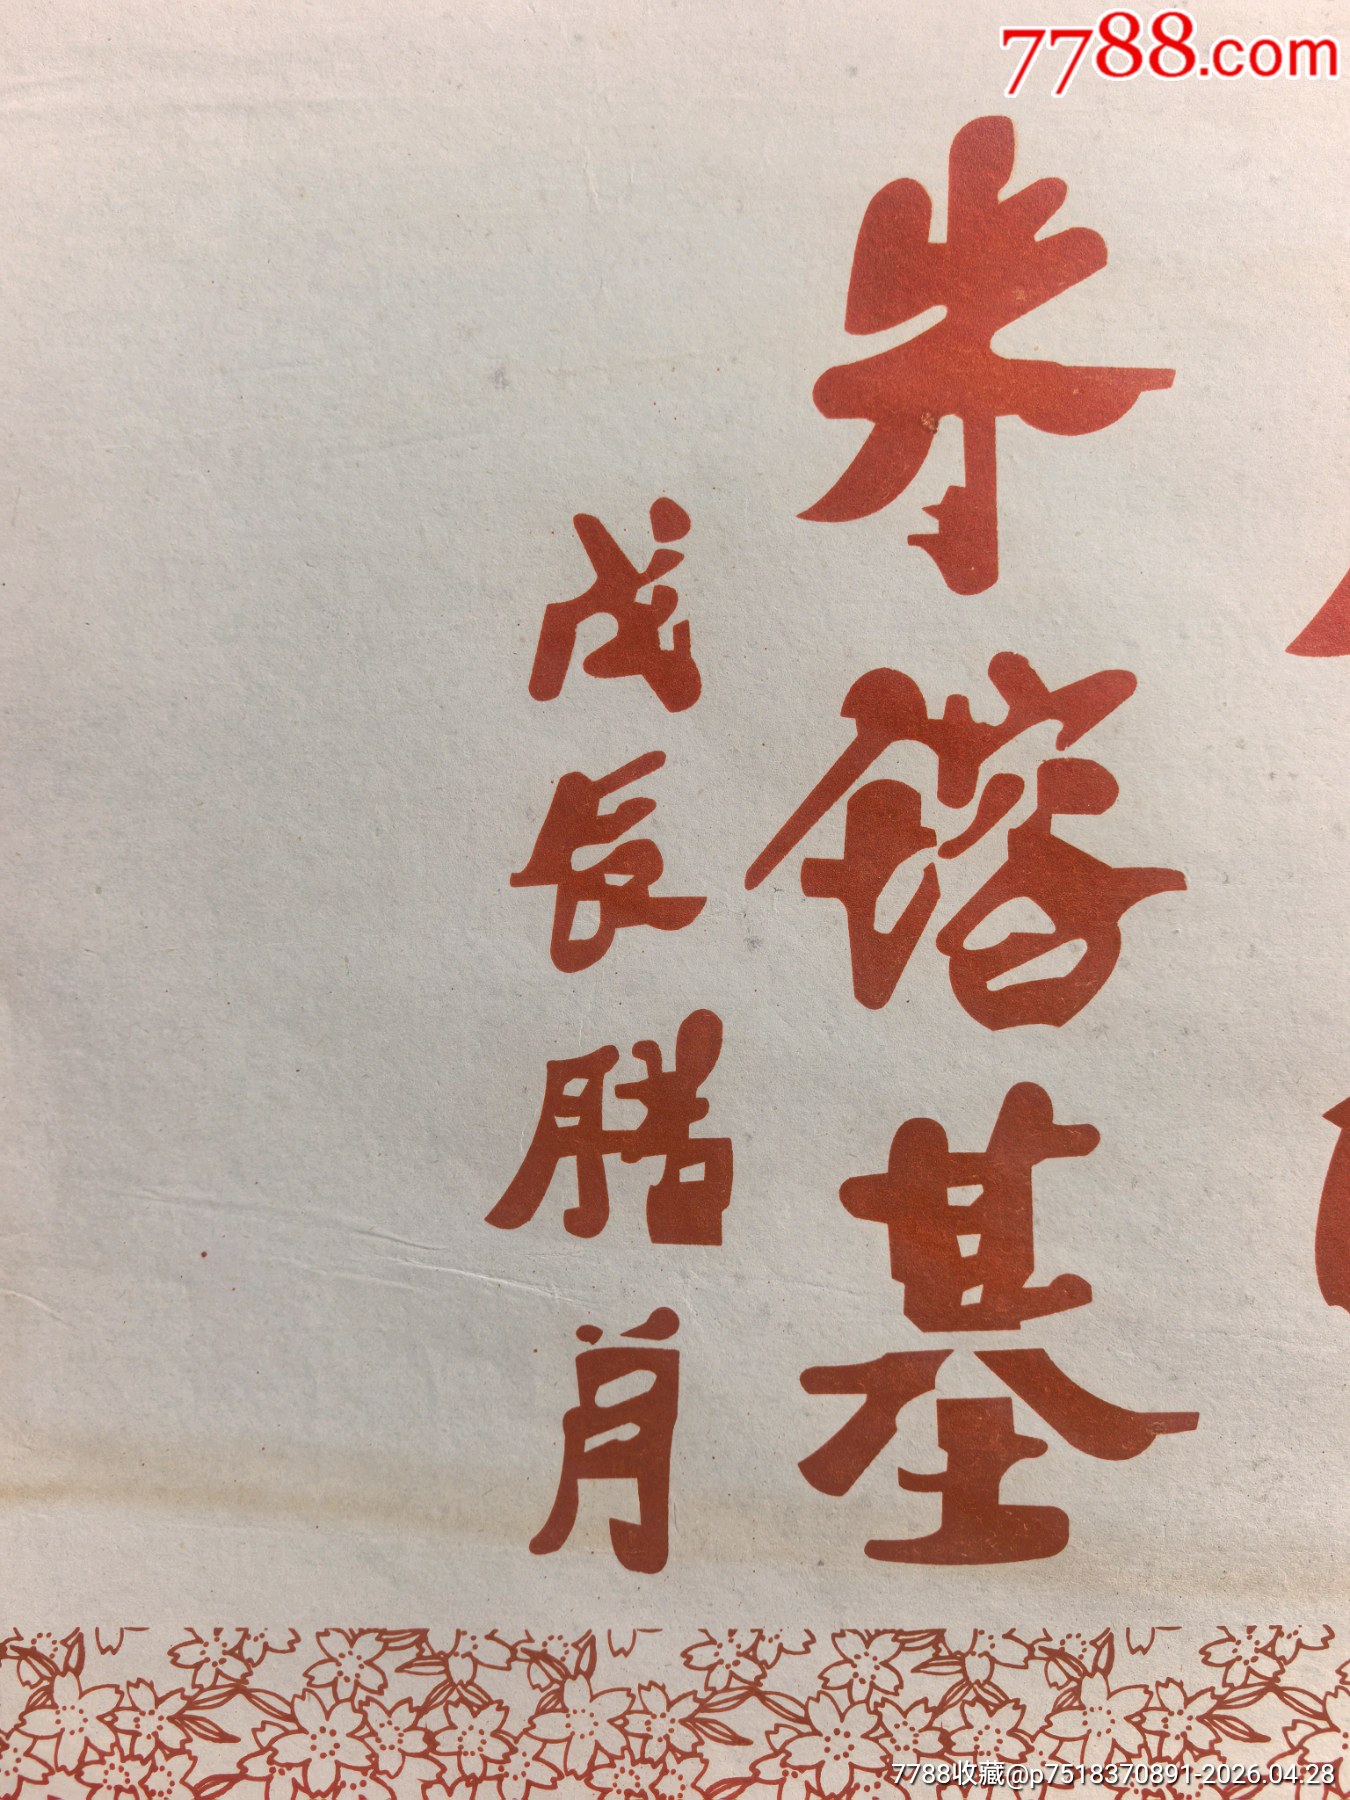 7788.com
朱镕基
戊辰腊月
7788收藏@p7518370891-2026.04.28